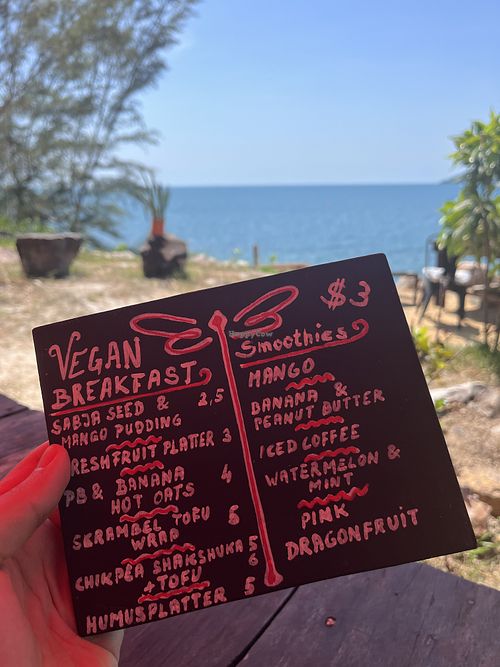 VEGAN
BREAKFAST
SABJA SEED & 2,5
MANGO PUDDING
FRESHFRUIT PLATTER 3
PB & BANANA 4
HOT OATS
SCRAMBEL TOFU 6
WRAP
CHIKPEA SHAKSHUKA 5
+ TOFU 6
HUMUSPLATTER 5
$3
Smoothies
MANGO
BANANA &
PEANUT BUTTER
ICED COFFEE
WATERMELON &
MINT
PINK
DRAGONFRUIT
HappyCow